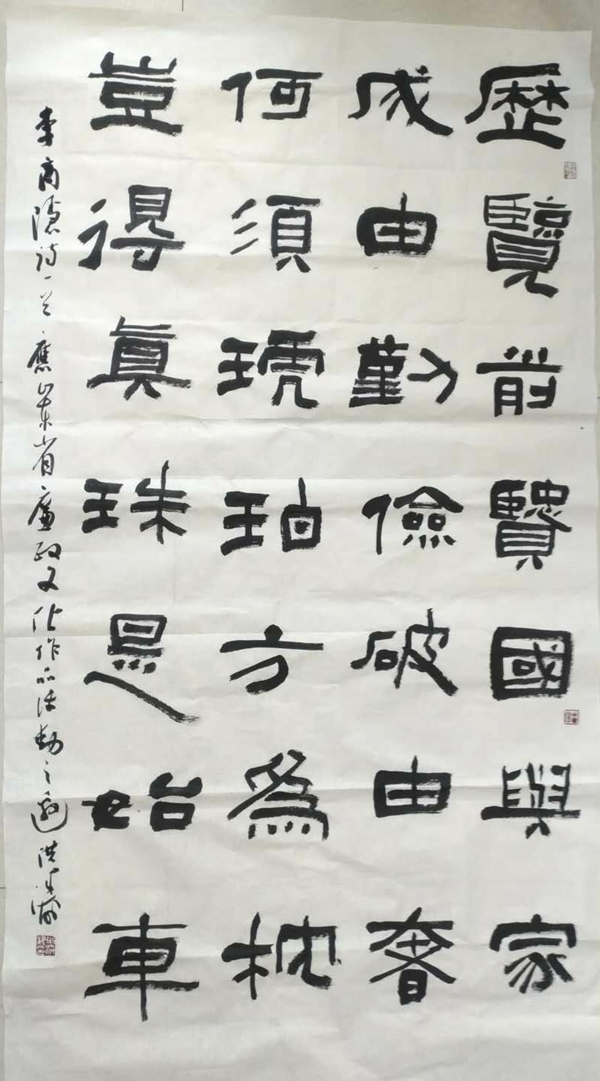 歷覽前賢國與家
成由勤儉破由奢
何須琥珀方為枕
豈得真珠是始車
李商隱詩一首應山東省廉政文化作品活動之邀洪